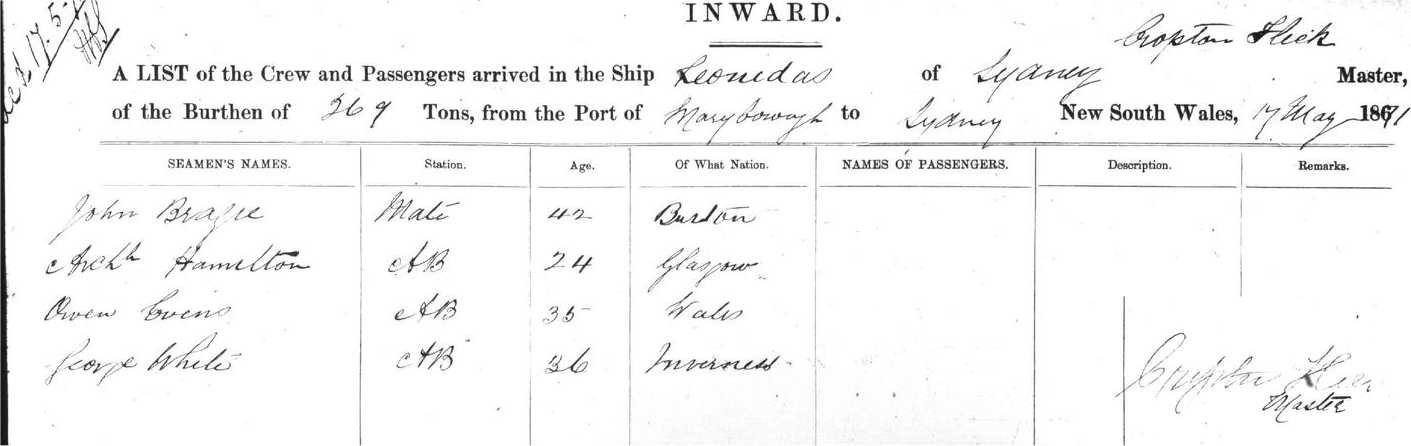 INWARD.
17.5.
Cropton Fleck
A LIST of the Crew and Passengers arrived in the Ship Leonidas of Sydney Master,
of the Burthen of 269 Tons, from the Port of Maryborough to Sydney New South Wales, 17 May 1871
SEAMEN'S NAMES. Station. Age. Of What Nation. NAMES OF PASSENGERS. Description. Remarks.
John Mate 42
Archh Hamilton AB 24 Glasgow
Owen Evins AB 35 Wales
George White AB 36 Inverness
Master